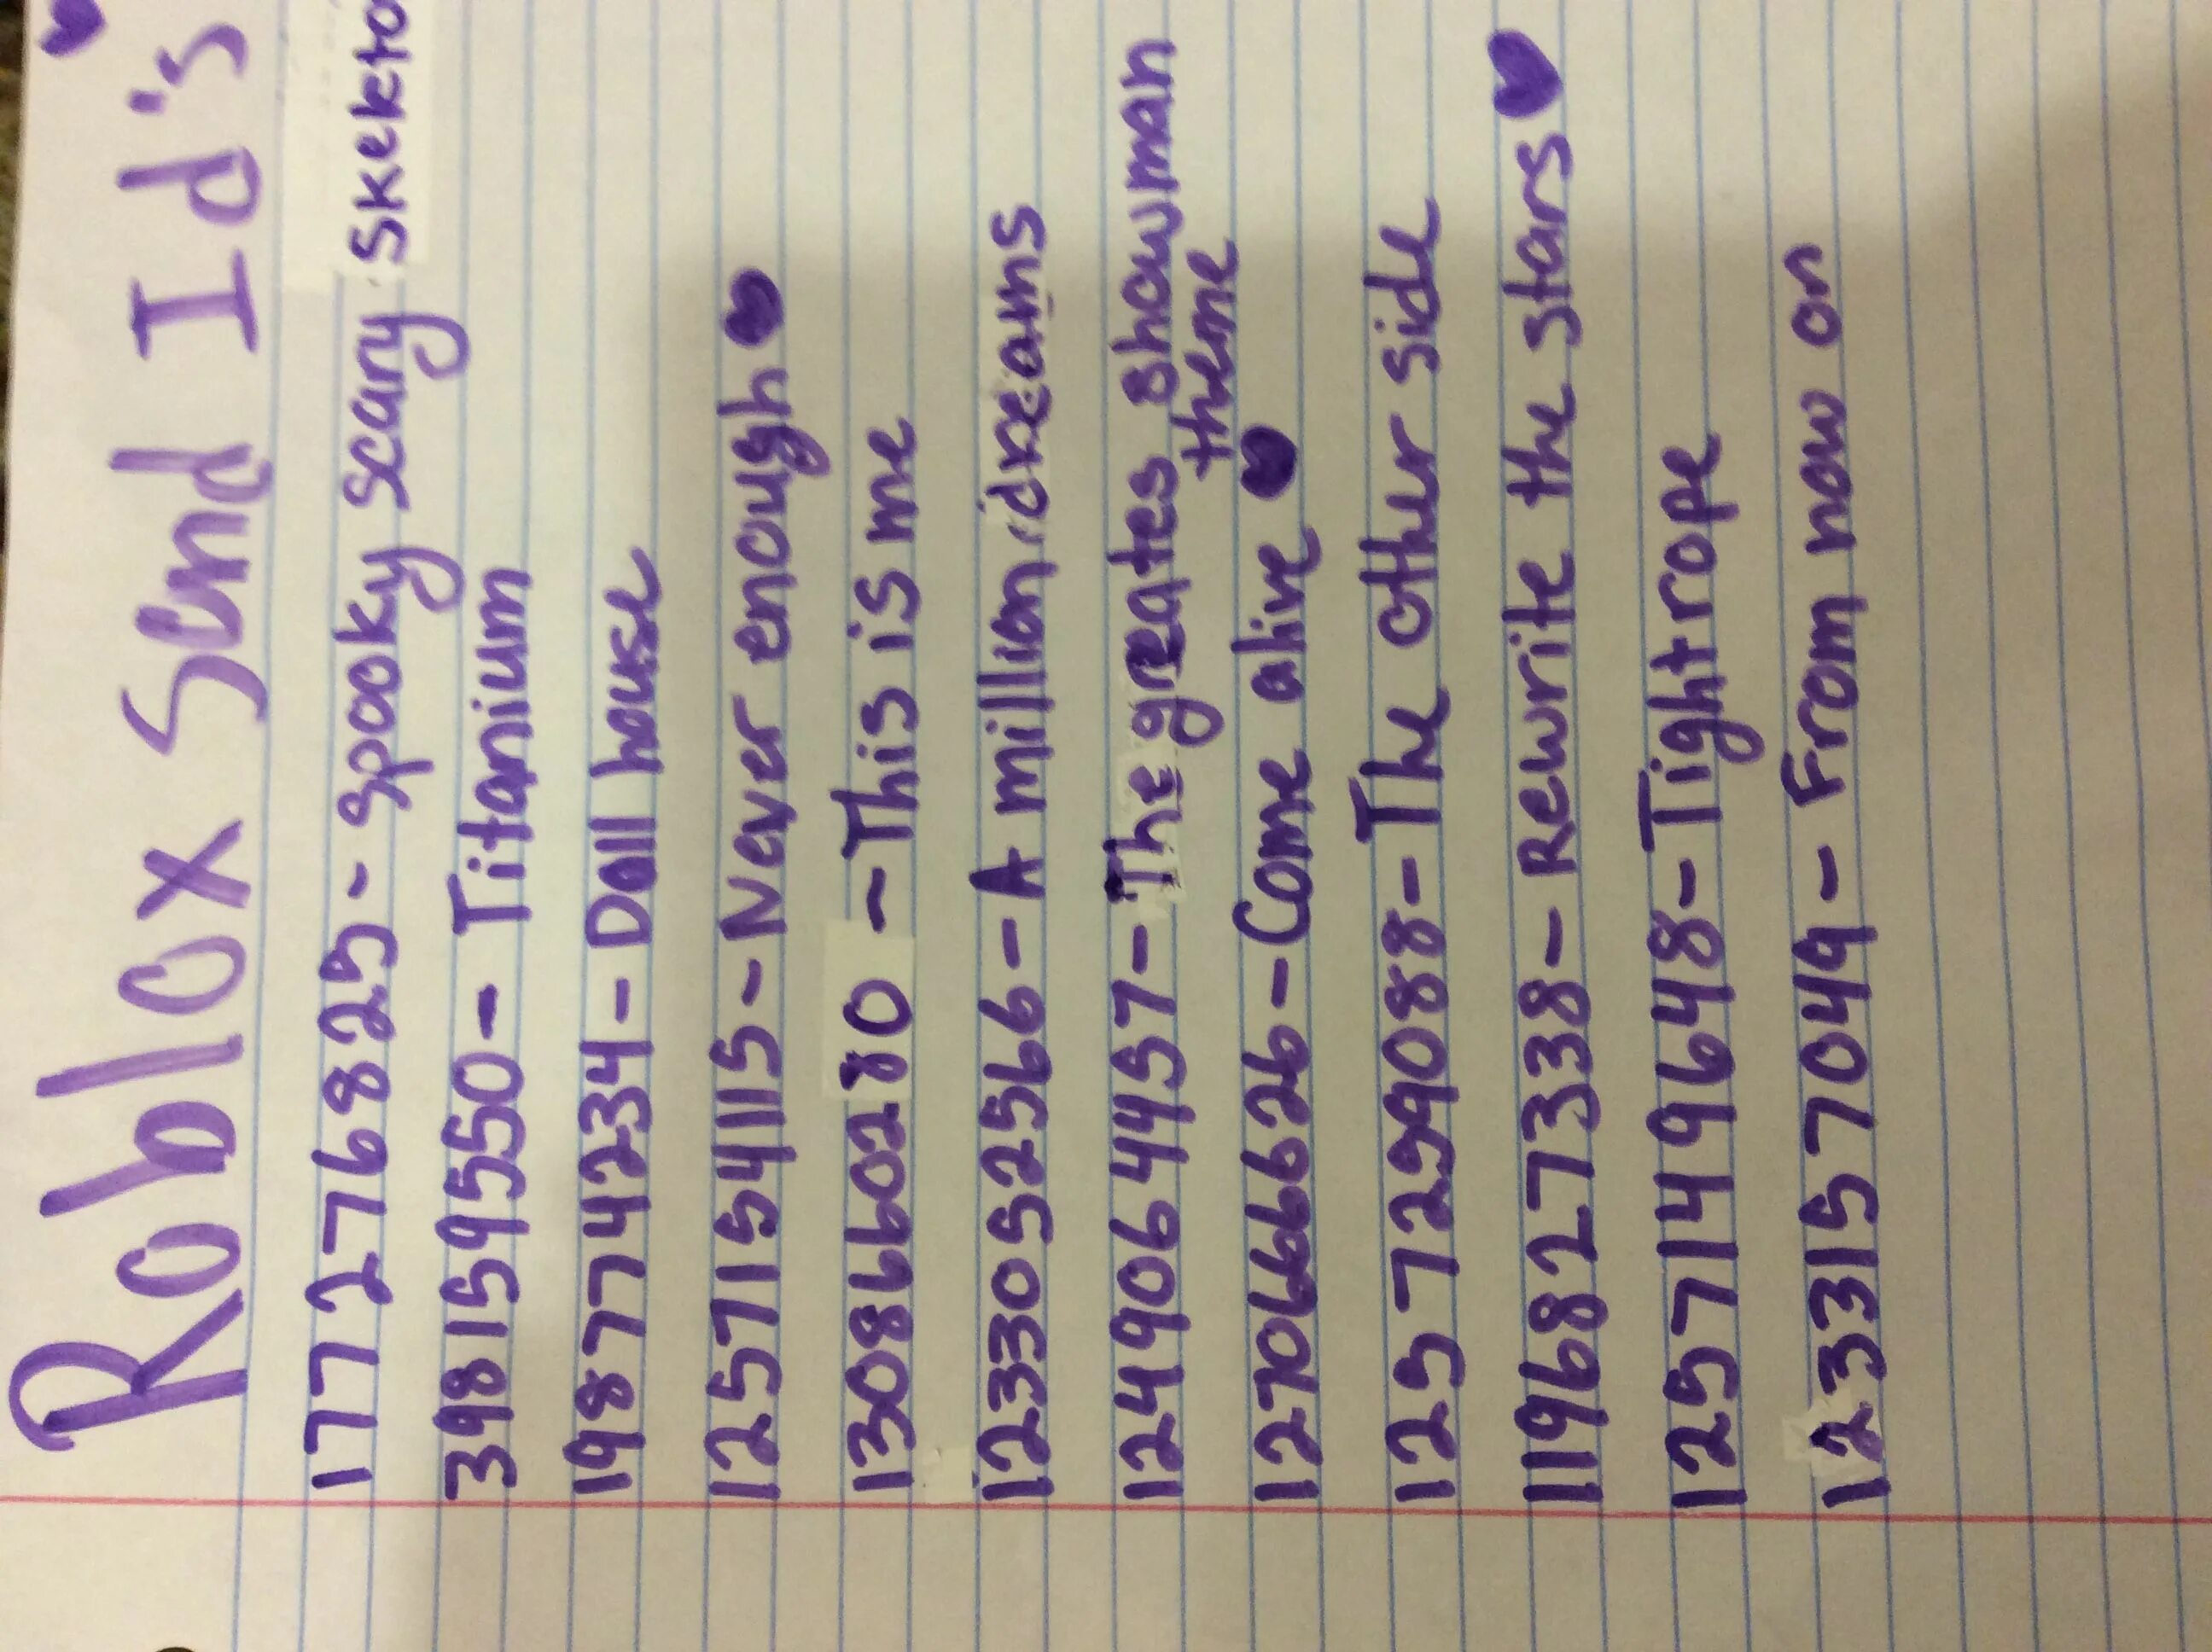 Roblox Send Id's
177276825 - Spooky scary skekto
398159550 - Titanium
1987742 34 - Doll house
1257154115 - Never enough
1308660280 - This is me
1233052566 - A million dreams
1249064457 - The greates showman
theme
1270666626 - Come alive
1257299088 - The other side
1196827338 - Rewrite the stars
1257149648 - Tightrope
1233157049 - From now on